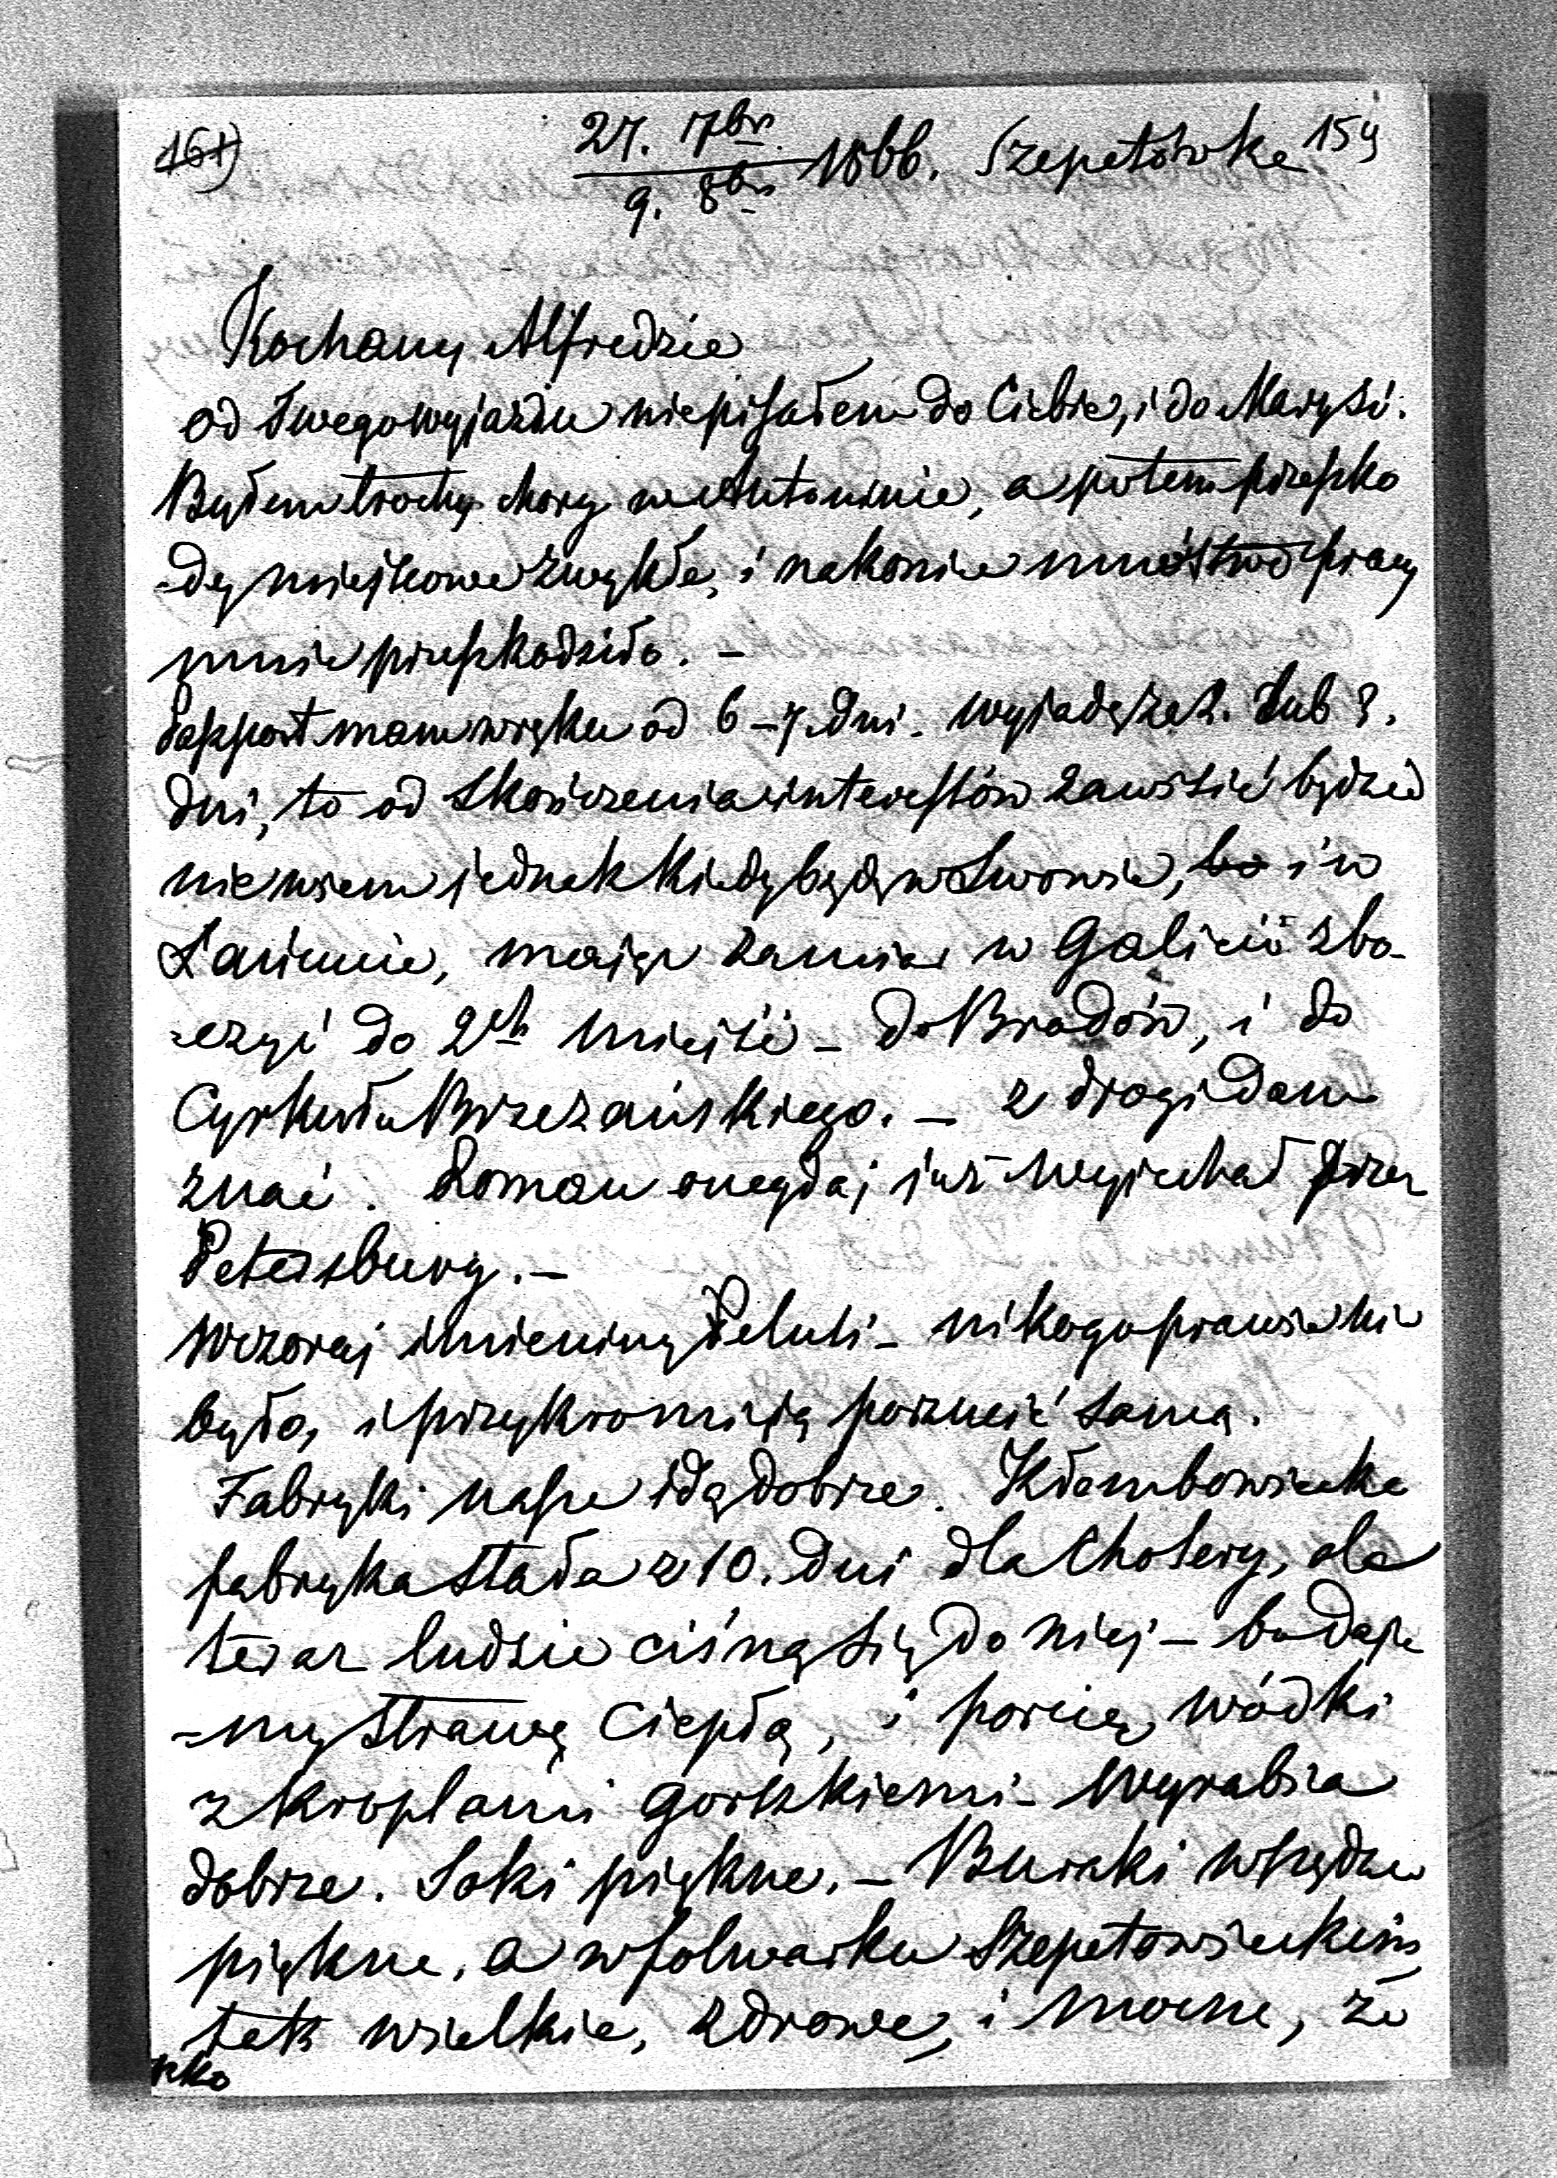 161)
27. 7br. 1866. Szepetówka 159
9. 8br
Kochany Alfredzie
od Twego wyjazdu niepisałem do Ciebie, i do Marysi.
Byłem trochę chory w Antoninie, a potem przeszko
-dy miejscowe zwykłe, i nakoniec mnóstwo pracy
mnie przeszkodziło. –
Passport mam w ręku od 6–7. dni. wyjadę za 2. lub 3.
dni, to od skończenia interessów zawisić będzie
nie wiem jednak kiedy będę w Lwowie, bo i w
Łańcucie, mając zamiar w Galicii zbo-
-czyć do 2ch miejść – do Brodów, i do
Cyrkułu Brzezańskiego. – z drogi dam
znać. Roman onegdaj już wyjechał przez
Petersburg. –
Wczoraj imieniny Pelusi – nikogo prawie nie
było, i przykro mi ją porzucić samą.
Fabryki nasze idą dobrze. Kłembowiecka
fabryka stała z 10. dni dla Cholery, ale
teraz ludzie cisną się do niej – bo daje
-my strawę ciepłą, i porcię wódki
z kroplami gorzkiemi – wyrabia
dobrze. Soki piękne. – Buraki wszędzie
piękne, a w folwarku Szepetowieckim
tak wielkie, zdrowe, i mocne, że